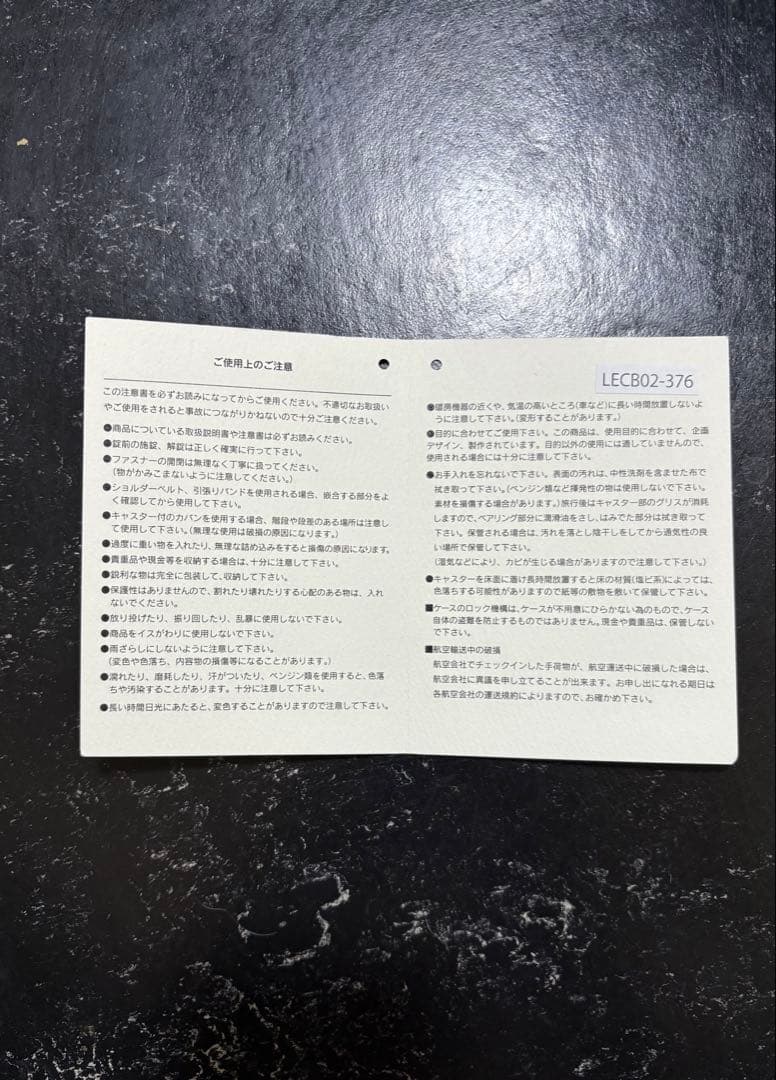 ご使用上のご注意
この注意書を必ずお読みになってからご使用ください。不適切なお取扱い
やご使用をされると事故につながりかねないので十分ご注意ください。
●商品についている取扱説明書や注意書は必ずお読みください。
●錠前の施錠、解錠は正しく確実に行って下さい。
●ファスナーの開閉は無理なく丁寧に扱ってください。
(物がかみこまないように注意してください。)
●ショルダーベルト、引張りバンドを使用される場合、嵌合する部分をよ
く確認してから使用して下さい。
●キャスター付のカバンを使用する場合、階段や段差のある場所は注意し
て使用して下さい。(無理な使用は破損の原因になります。)
●過度に重い物を入れたり、無理な詰め込みをすると損傷の原因になります。
●貴重品や現金等を収納する場合は、十分に注意して下さい。
●鋭利な物は完全に包装して、収納して下さい。
●保護性はありませんので、割れたり壊れたりする心配のある物は、入れ
ないでください。
●放り投げたり、振り回したり、乱暴に使用しないで下さい。
●商品をイスがわりに使用しないで下さい。
●雨ざらしにしないように注意して下さい。
(変色や色落ち、内容物の損傷等になることがあります。)
●濡れたり、磨耗したり、汗がついたり、ベンジン類を使用すると、色落
ちや汚染することがあります。十分に注意して下さい。
●長い時間日光にあたると、変色することがありますので注意して下さい。
LECB02-376
●暖房機器の近くや、気温の高いところ(車など)に長い時間放置しないよ
うに注意して下さい。(変形することがあります。)
●目的に合わせてご使用下さい。この商品は、使用目的に合わせて、企画
デザイン、製作されています。目的以外の使用には適していませんので、
使用される場合には十分に注意して下さい。
●お手入れを忘れないで下さい。表面の汚れは、中性洗剤を含ませた布で
拭き取って下さい。(ベンジン類など揮発性の物は使用しないで下さい。
素材を損傷する場合があります。)旅行後はキャスター部のグリスが消耗
しますので、ベアリング部分に潤滑油をさし、はみでた部分は拭き取って
下さい。保管される場合は、汚れを落とし陰干しをしてから通気性の良
い場所で保管して下さい。
(湿気などにより、カビが生じる場合がありますので注意して下さい。)
●キャスターを床面に着け長時間放置すると床の材質(塩ビ系)によっては、
色落ちする可能性がありますので紙等の敷物を敷いて保管して下さい。
■ケースのロック機構は、ケースが不用意にひらかない為のもので、ケース
自体の盗難を防止するものではありません。現金や貴重品は、保管しない
で下さい。
■航空輸送中の破損
航空会社でチェックインした手荷物が、航空運送中に破損した場合は、
航空会社に異議を申し立てることが出来ます。お申し出になれる期日は
各航空会社の運送規約によりますので、お確かめ下さい。